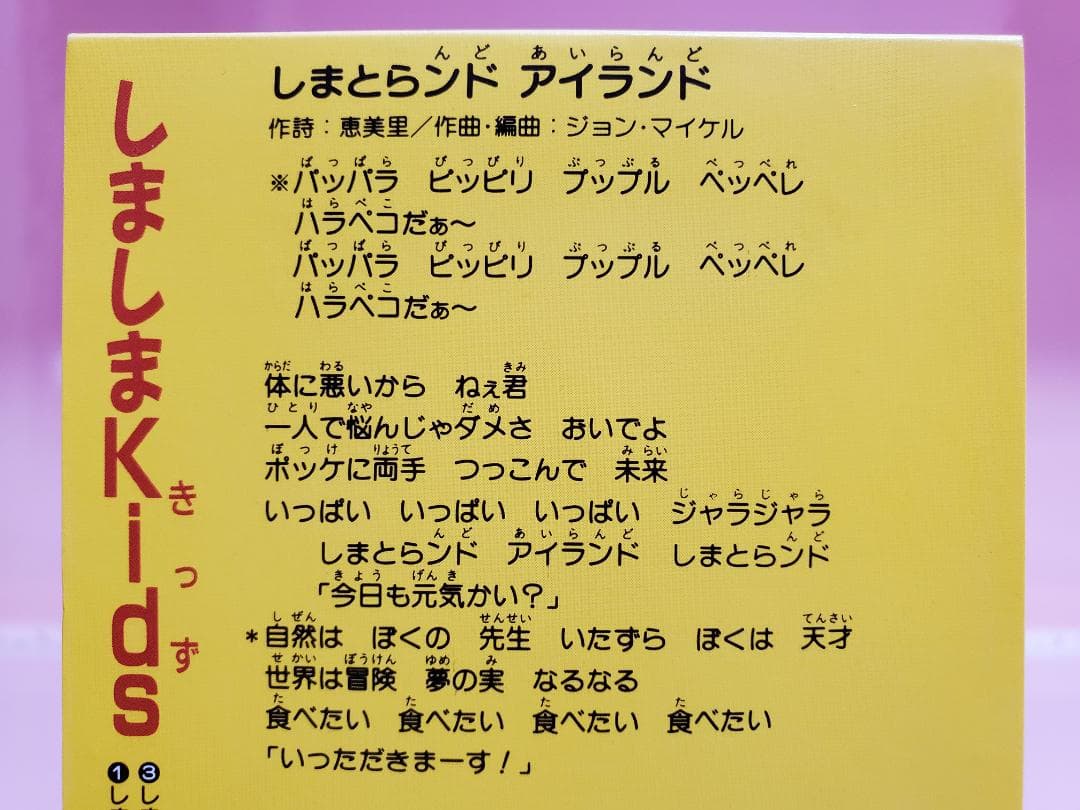 しまとらンド アイランド
作詩：恵美里／作曲・編曲：ジョン・マイケル
※バッパラ ピッピリ プップル ペッペレ
ハラペコだぁ〜
バッパラ ピッピリ プップル ペッペレ
ハラペコだぁ〜
体に悪いから ねぇ君
一人で悩んじゃダメさ おいでよ
ポッケに両手 つっこんで 未来
いっぱい いっぱい いっぱい ジャラジャラ
しまとらンド アイランド しまとらンド
「今日も元気かい？」
＊自然は ぼくの 先生 いたずら ぼくは 天才
世界は冒険 夢の実 なるなる
食べたい 食べたい 食べたい 食べたい
「いっただきまーす！」
しましまKids
きっず
❸し
❶し